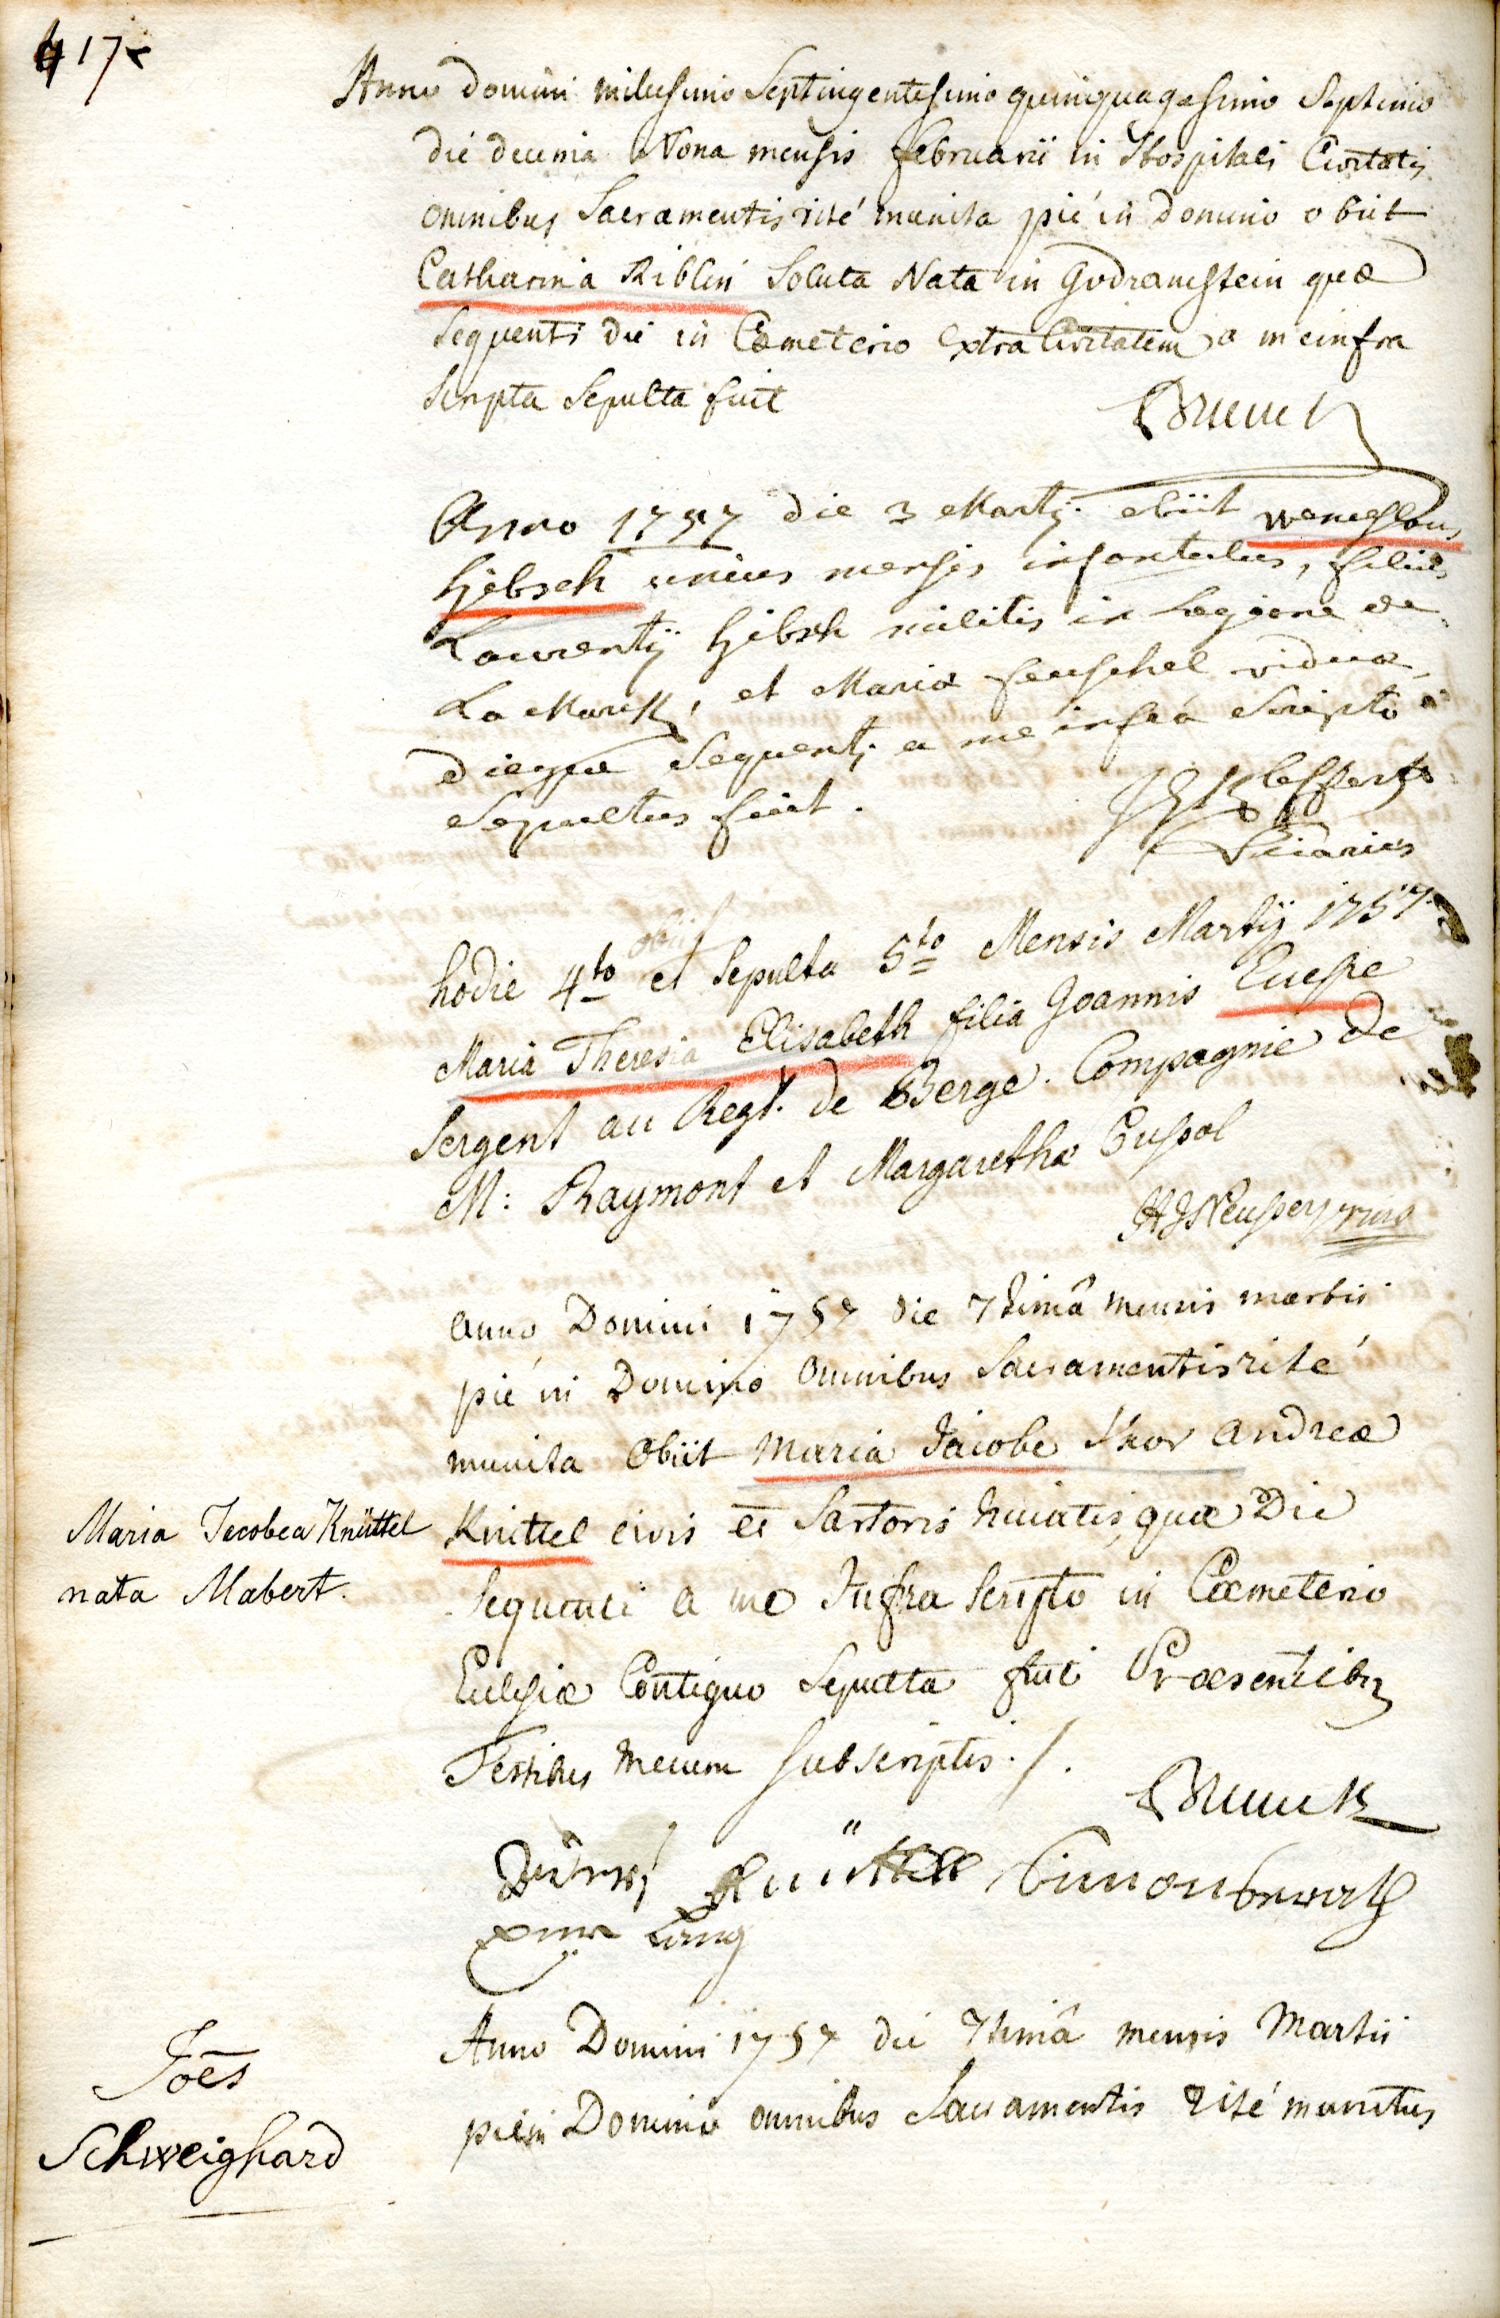 417
Anno domini millesimo Septingentesimo quinquagesimo Septimo
die decima Nona mensis februarii in Hospitali Civitatis
omnibus Sacramentis rité munita pié in domino obiit
Catharina Riblin Soluta Nata in Godramstein quæ
sequenti die in Cœmeterio extra Civitatem a me infra
scripta Sepulta fuit
Brunck
Anno 1757 die 3 Martij obiit Weneslaus
Hibsch unius mensis infantulus, filius
Laurentij Hibsch militis in Legione de
La Marck, et Mariæ feuschel viduæ,
dieque Sequenti a me infrá Scripto
Sepultus fuit.
Vicarius
obiit
hodie 4to et Sepulta 5to Mensis Martij 1757
Maria Theresia Elisabeth filia Joannis Euesse
Sergent au Regt. de Berge. Compagnie de
M: Raymont et Margarethæ Cussol
anno Domini 1757 die 7timâ mensis martii
pié in Domino omnibus Sacramentis rité
munita obiit Maria Jacobe Uxor andreæ
Knittel civis et Sartoris huiatis, quæ Die
sequenti a me Infra Scripto in Cœmeterio
Eclesiæ Contiguo Sepulta fuit Præsentibus
Testibus mecum subscriptis ./.
Maria Jacobea Knüttel
nata Mabert.
Brunck
Knüttell
Anno Domini 1757 die 7timâ mensis Martii
pié in Domino omnibus Sacramentis rité munitus
Joēs
Schweighard